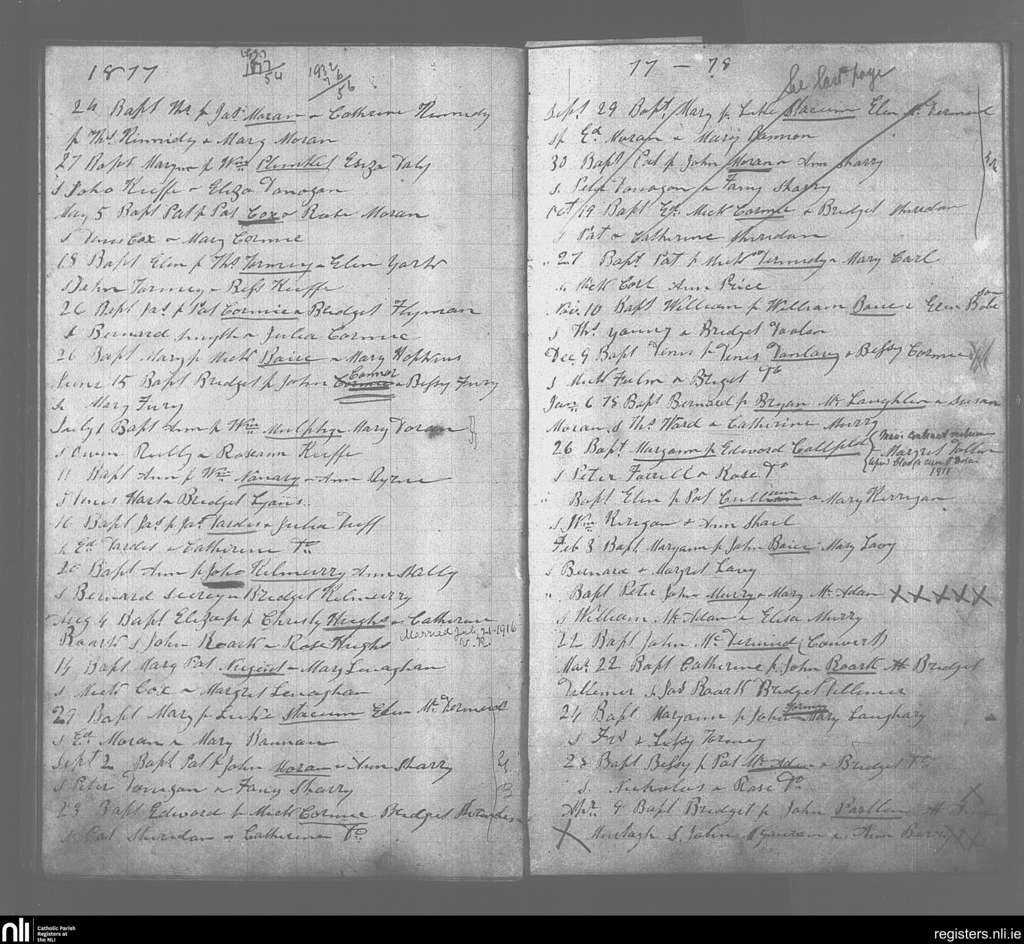 1877
1937
1877
54
1932
76
56
24 Bapt Ths p Jas Moran & Cathrine Kinnedy
p Ths Kinnidy & Mary Moran
27 Bapt Maryan p Wm Plunket Eliza Daly
s John Kieffe & Eliza Donogan
May 5 Bapt Pat p Pat Cox & Rose Moran
s Denis Cox & Mary Cormic
18 Bapt Elen p Ths Tormey & Elen
s John Tormey & Bess Kieffe
26 Bapt Jas p Pat Cormic & Bridget Flynan
s Bernard Smyth & Julia Cormic
26 Bapt Mary p Mick Baire & Mary Hopkins
June 15 Bapt Bridget p John Connor & Bessy Fury
s Mary Fury
July 1 Bapt Ann p Wm Mulphy & Mary Doran
s Owen Reilly & Roseann Kieffe
11 Bapt Ann p Wm Nanary & Ann Byrne
s Denis Hart & Bridget Lyons
16 Bapt Jas p Jas Dardis & Julia Duff
s Ed Dardis & Catherine Do
20 Bapt Ann p John Kelmurry Ann Nally
s Bernard & Bridget Kelmurry
Aug 4 Bapt Eliza p Christy Hughs & Catherine
Married July 21 1916
Roark s John Roark & Rose Hughs
V. R
14 Bapt Mary Pat Nugent & Mary Lenaghan
s Mick Cox & Margret Lenaghan
29 Bapt Mary p Luke Slacum Elen Mc Dermod
s Ed Moran & Mary Bannan
Sept 2 Bapt Pat p John Moran & Ann Sharry
s Peter Donigan & Fany Sharry
23 Bapt Edward p Mick Cormic Bridget Sheridan
s Pat Sheridan & Catherine Do
77 - 78
See last page
Sept 29 Bapt Mary p Luke Slacum Elen Mc Dermod
sp Ed Moran & Mary Bannon
30 Bapt Pat p John Moran & Ann Sharry
s Peter Donagon & Fany Sharry
Oct 19 Bapt Ed Mick Cormic & Bridget Sheridan
s Pat & Catherine Sheridan
" 27 Bapt Pat p Mick Dermody & Mary Carl
s Mick Corl Ann Price
Nov. 10 Bapt William p William Baire & Elen
s Ths Young & Bridget Doolan
Dec 9 Bapt Denis p Denis & Bessy Cormic
s Mick & Briget Do
Jan 6 78 Bapt Bernard p Bryan Mc Laughlin & Susan
Moran s Ths Ward & Catherine Murry
26 Bapt Maryann p Edward & Margret
1911
s Peter Farrell & Rose Do
" Bapt Elen p Pat Cullium & Mary Kerrigan
s Wm Kerigan & Ann Shail
Feb 3 Bapt Maryann p John Baire Mary Lavy
s Bernard & Margret Lavy
" Bapt Peter John Murry & Mary Mc Adam XXXXX
s William Mc Adam & Elisa Murry
22 Bapt John Mc Dermod (Convert)
Mar 22 Bapt Catherine p John Roark & Bridget
Dillemer s Jas Roark Bridget Dillemer
24 Bapt Maryann p John Tormey Mary Langhary
s & Tormey
28 Bapt Bessy p Pat Mc Adam & Bridget Do
s. Nicholus & Rose Do
Apr 4 Bapt Bridget p John
X Murtagh s. John & Ann
nli
Catholic Parish
Registers at
the NLI
registers.nli.ie